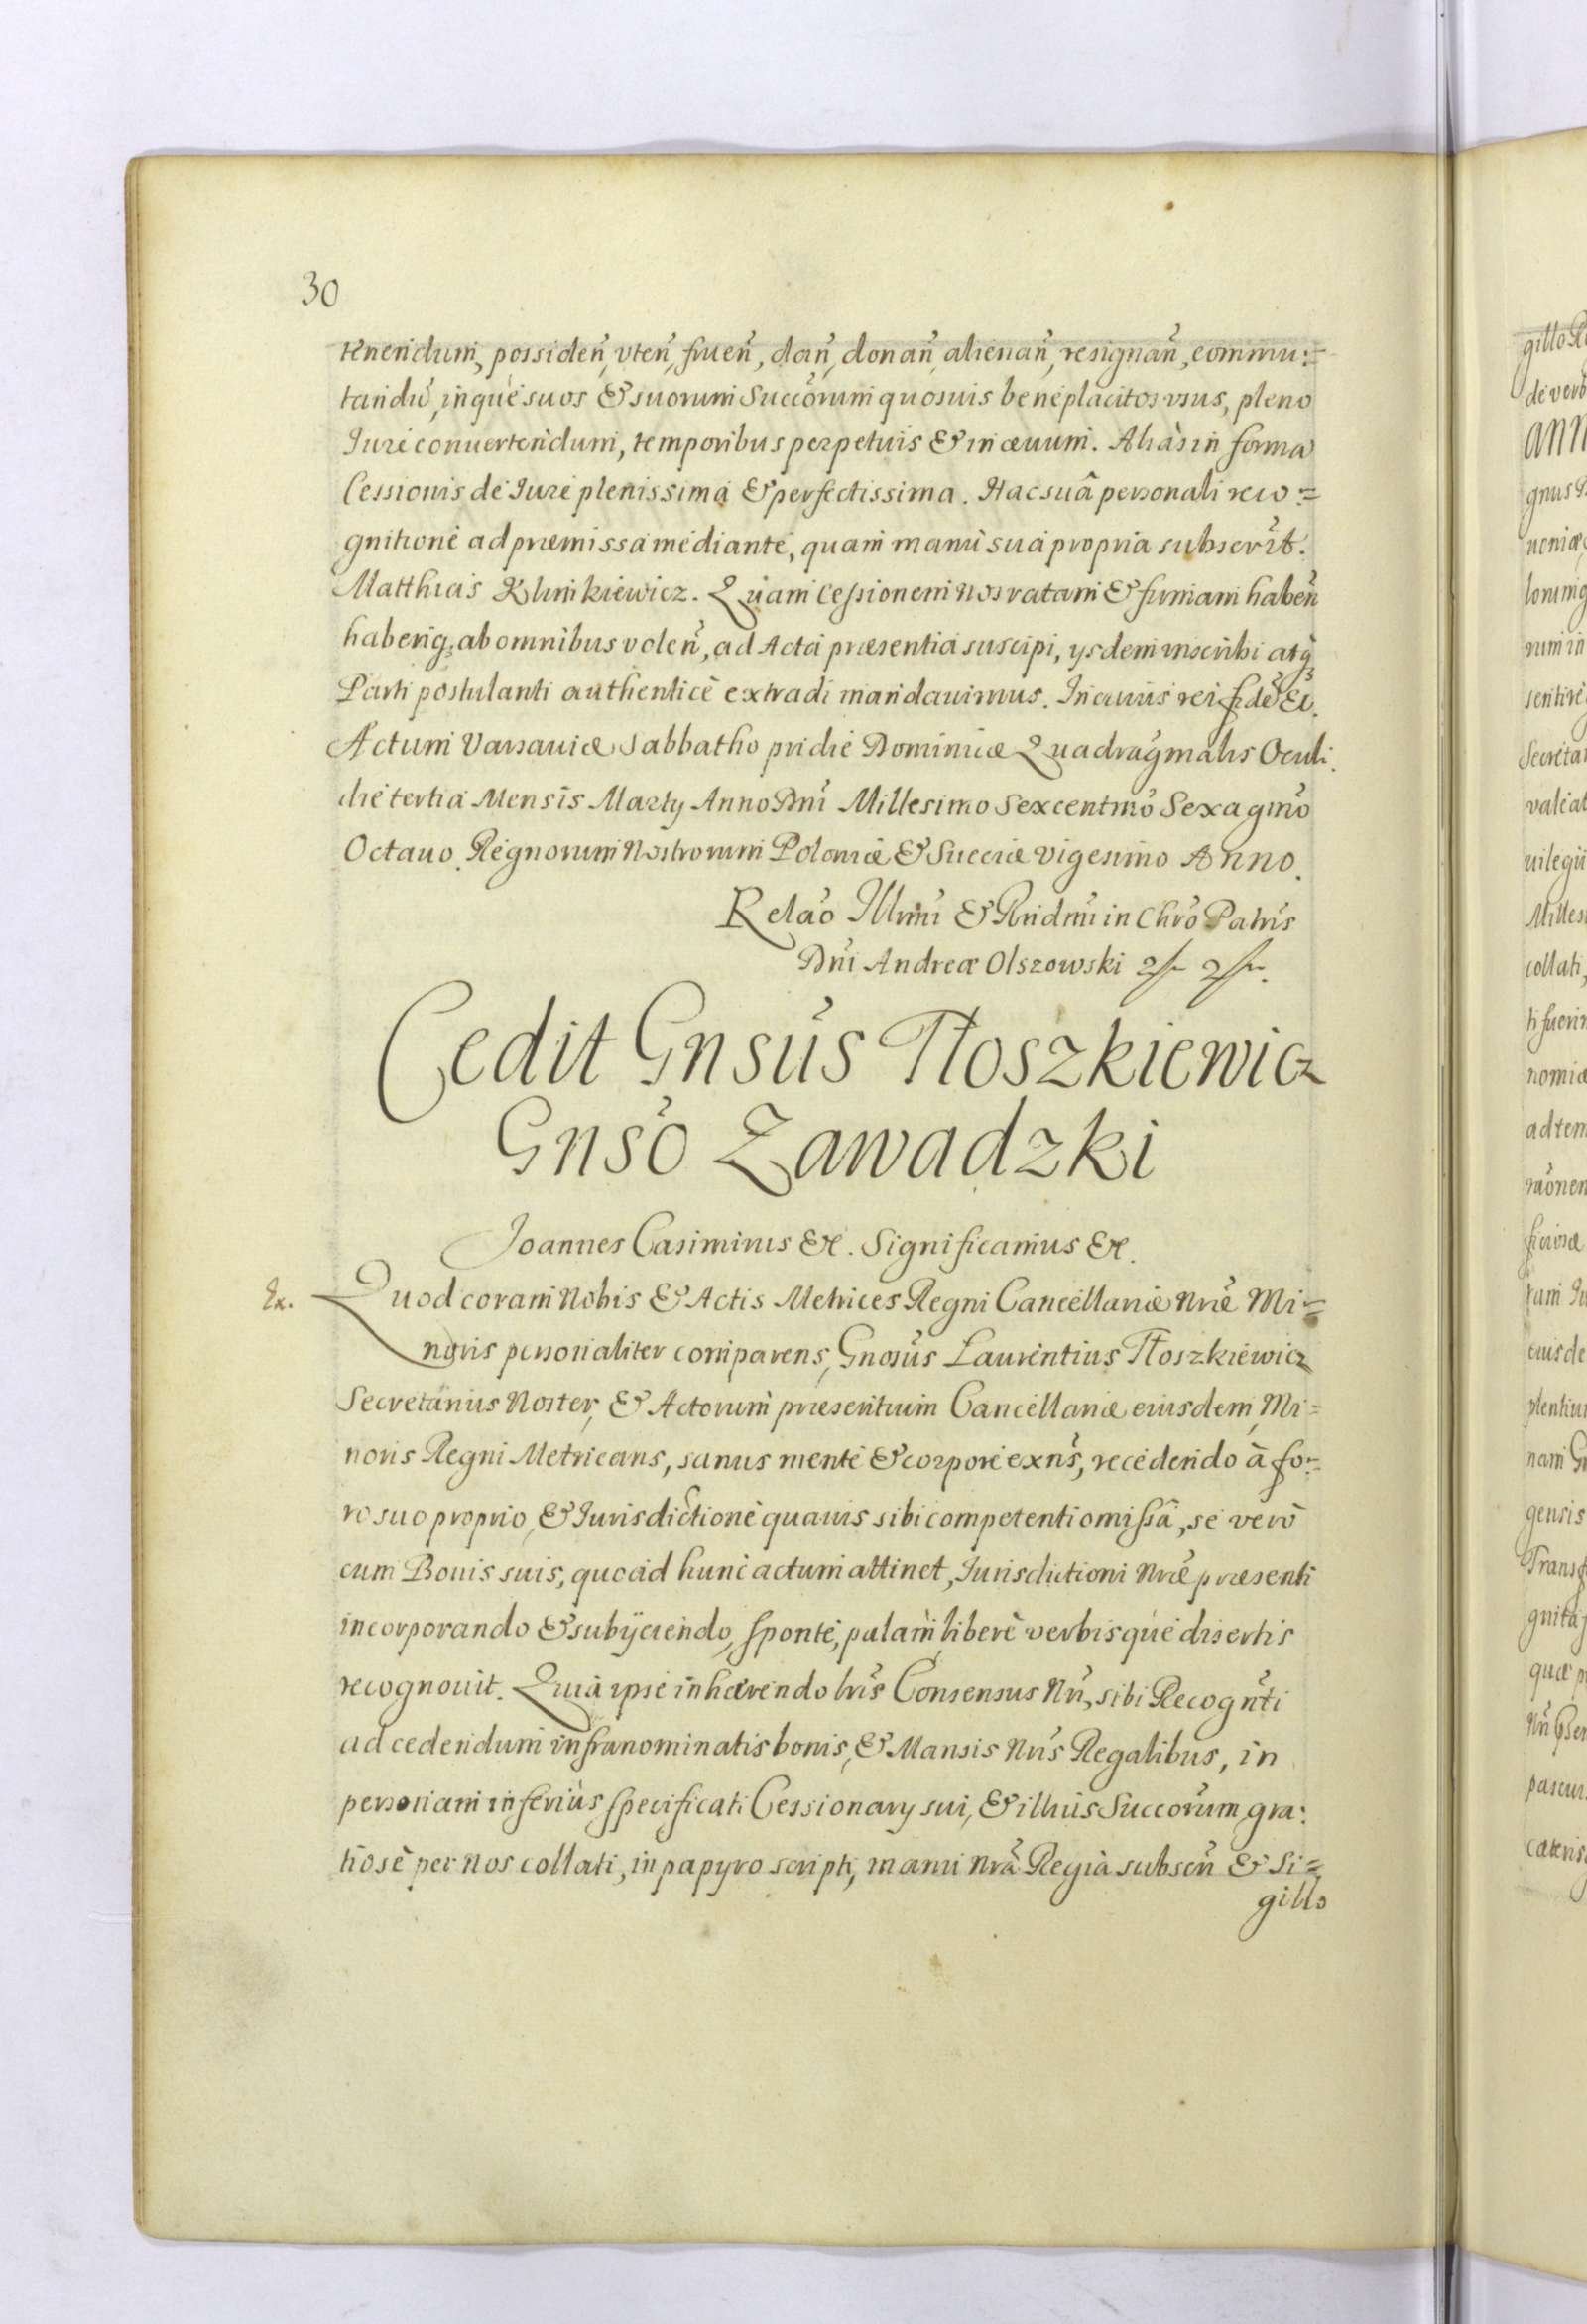 30
tenendum, possideñ, vteñ, frueñ, dañ, donañ, alienañ, resignañ, commu:=
tandũ, inque suos & suorum Succõrum quosuis beneplacitos vsus, pleno
Iure conuertendum, temporibus perpetuis & in æuum. Aliàs in forma
Cessionis de Iure plenissima & perfectissima. Hac suâ personali reco:=
gnitione ad præmissa mediante, quam manu sua propria subscrit̃.
Matthias Klimkiewicz. Quam Cessionem Nos ratam & firmam habeñ
haberiq; ab omnibus voleñ, ad Acta præsentia suscipi, ysdem inscribi atq;
Parti postulanti authenticè extradi mandauimus. In cuius rei fidẽ &.
Actum Varsauiæ Sabbatho pridie Dominicæ Quadrag̃malis Oculi.
die tertia Mensis Marty Anno Dñi Millesimo Sexcentm̃o Sexagm̃o
Octauo. Regnorum Nostrorum Poloniæ & Sueciæ Vigesimo Anno.
Relão Illmi & Rndmi in Chrõ Patris
Dñi Andreæ Olszowski
Cedit Gnsus Tłoszkiewicz
Gnsõ Zawadzki
Joannes Casimirus &c. Significamus &c.
Ex. Quod coram Nobis & Actis Metrices Regni Cancellariæ Nrẽ Mi=
noris personaliter comparens, Gnosus Laurentius Tłoszkiewicz
Secretarius Noster, & Actorum præsentium Cancellariæ eiusdem, Mi=
noris Regni Metricans, sanus mente & corpore exñs, recedendo à fo:=
ro suo proprio, & Iurisdictione quauis sibi competenti omissâ, se verò
cum Bonis suis, quoad hunc actum attinet, Iurisdictioni Nrẽ præsenti
incorporando & subijciendo, sponte, palam, liberè verbisque disertis
recognouit. Quia ipse inhærendo lrĩs Consensus Nri, sibi Recogñti
ad cedendum infranominatis bonis, & Mansis Nrĩs Regalibus, in
personam inferiùs specificati Cessionary sui, & illius Succorũm gra:
tiosè per Nos collati, in papyro scripti, manu Nrã Regia subscñ & Si=
gillo